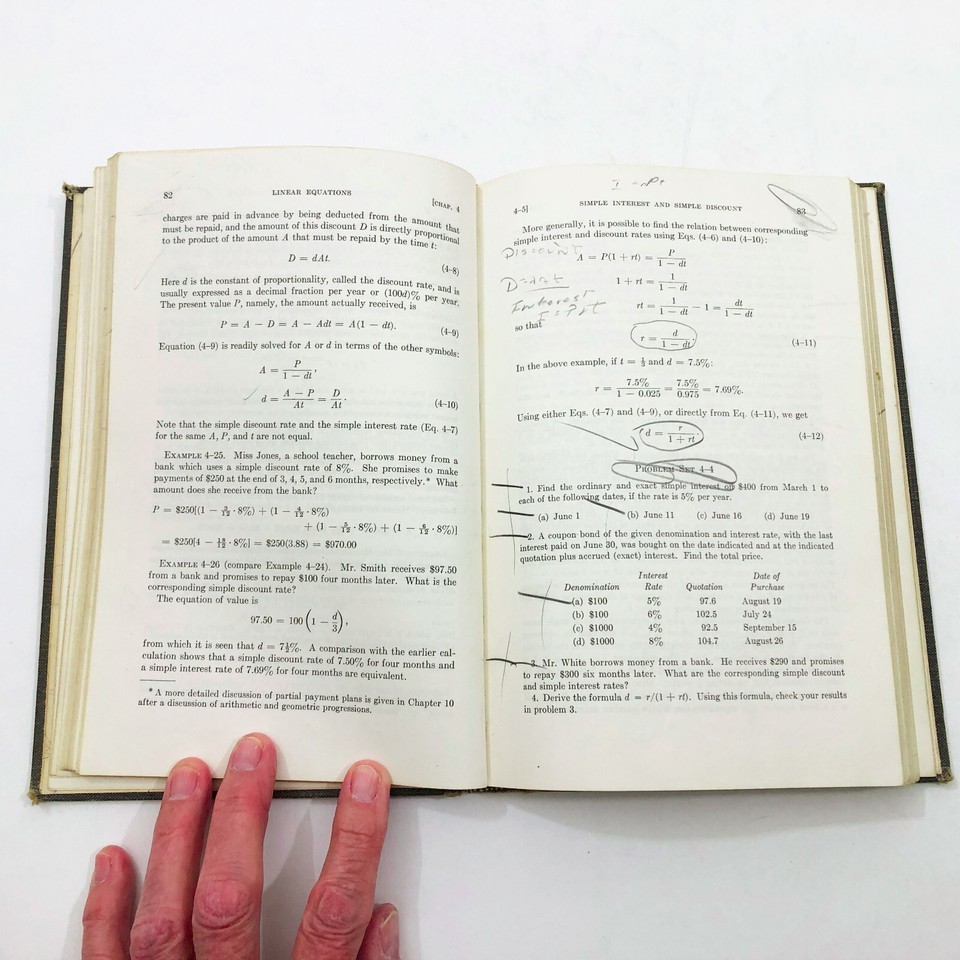 82
LINEAR EQUATIONS
[CHAP. 4
charges are paid in advance by being deducted from the amount that
must be repaid, and the amount of this discount D is directly proportional
to the product of the amount A that must be repaid by the time t:
D = dAt.
(4–8)
Here d is the constant of proportionality, called the discount rate, and is
usually expressed as a decimal fraction per year or (100d)% per year.
The present value P, namely, the amount actually received, is
P = A − D = A − Adt = A(1 − dt).
(4–9)
Equation (4–9) is readily solved for A or d in terms of the other symbols:
A = P / (1 − dt),
d = (A − P) / At = D / At.
(4–10)
Note that the simple discount rate and the simple interest rate (Eq. 4–7)
for the same A, P, and t are not equal.
EXAMPLE 4–25. Miss Jones, a school teacher, borrows money from a
bank which uses a simple discount rate of 8%. She promises to make
payments of $250 at the end of 3, 4, 5, and 6 months, respectively.* What
amount does she receive from the bank?
P = $250[(1 − 3/12 · 8%) + (1 − 4/12 · 8%)
+ (1 − 5/12 · 8%) + (1 − 6/12 · 8%)]
= $250[4 − 18/12 · 8%] = $250(3.88) = $970.00
EXAMPLE 4–26 (compare Example 4–24). Mr. Smith receives $97.50
from a bank and promises to repay $100 four months later. What is the
corresponding simple discount rate?
The equation of value is
97.50 = 100 (1 − d/3),
from which it is seen that d = 7½%. A comparison with the earlier cal-
culation shows that a simple discount rate of 7.50% for four months and
a simple interest rate of 7.69% for four months are equivalent.
* A more detailed discussion of partial payment plans is given in Chapter 10
after a discussion of arithmetic and geometric progressions.
I = rPt
4–5]
SIMPLE INTEREST AND SIMPLE DISCOUNT
83
More generally, it is possible to find the relation between corresponding
simple interest and discount rates using Eqs. (4–6) and (4–10):
DISCOUNT
A = P(1 + rt) = P / (1 − dt)
D=dAt
1 + rt = 1 / (1 − dt)
Interest
I = Prt
rt = 1 / (1 − dt) − 1 = dt / (1 − dt)
so that
r = d / (1 − dt).
(4–11)
In the above example, if t = ⅓ and d = 7.5%:
r = 7.5% / (1 − 0.025) = 7.5% / 0.975 = 7.69%.
Using either Eqs. (4–7) and (4–9), or directly from Eq. (4–11), we get
d = r / (1 + rt).
(4–12)
PROBLEM SET 4–4
1. Find the ordinary and exact simple interest on $400 from March 1 to
each of the following dates, if the rate is 5% per year.
(a) June 1 (b) June 11 (c) June 16 (d) June 19
2. A coupon bond of the given denomination and interest rate, with the last
interest paid on June 30, was bought on the date indicated and at the indicated
quotation plus accrued (exact) interest. Find the total price.
Interest Date of
Denomination Rate Quotation Purchase
(a) $100 5% 97.6 August 19
(b) $100 6% 102.5 July 24
(c) $1000 4% 92.5 September 15
(d) $1000 8% 104.7 August 26
3. Mr. White borrows money from a bank. He receives $290 and promises
to repay $300 six months later. What are the corresponding simple discount
and simple interest rates?
4. Derive the formula d = r/(1 + rt). Using this formula, check your results
in problem 3.